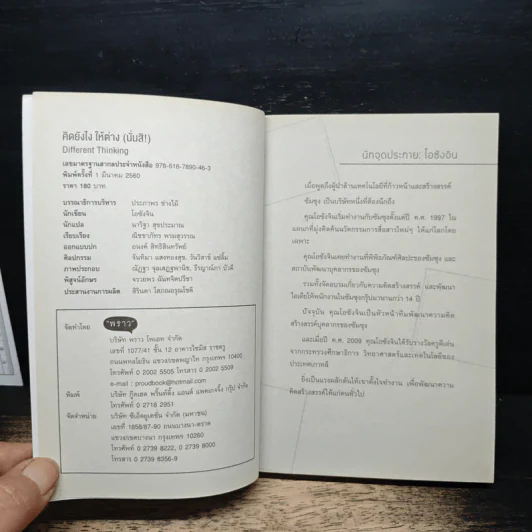 คิดยังไง ให้ต่าง (นั่นสิ!)
Different Thinking
เลขมาตรฐานสากลประจำหนังสือ 978-616-7890-46-3
พิมพ์ครั้งที่ 1 มีนาคม 2560
ราคา 180 บาท
บรรณาธิการบริหาร ประภาพร ช่างไม้
นักเขียน โอซังจิน
นักแปล นาริฐา สุขประมาณ
เรียบเรียง ณิชชาภัทร พรมสุวรรณ
ออกแบบปก อนงค์ สิทธิสินทรัพย์
ศิลปกรรม จันทิมา แสงทองสุข, วันวิสาข์ แซ่ลิ้ม
ภาพประกอบ
พิสูจน์อักษร จรวยพร ฉันทจิตปรีชา
ประสานงานการผลิต สิรินดา โสภณอรุณโชติ
จัดทำโดย "พราว"
บริษัท พราว โพเอท จำกัด
เลขที่ 1077/41 ชั้น 12 อาคารไซมิส ราชครู
ถนนพหลโยธิน แขวงเขตพญาไท กรุงเทพฯ 10400
โทรศัพท์ 0 2002 5505 โทรสาร 0 2002 5509
e-mail : proudbook@hotmail.com
พิมพ์ บริษัท กู๊ดเฮด พริ้นท์ติ้ง แอนด์ แพคเกจจิ้ง กรุ๊ป จำกัด
โทรศัพท์ 0 2718 2951
จัดจำหน่าย บริษัท ซีเอ็ดยูเคชั่น จำกัด (มหาชน)
เลขที่ 1858/87-90 ถนนบางนา-ตราด
แขวงเขตบางนา กรุงเทพฯ 10260
โทรศัพท์ 0 2739 8222, 0 2739 8000
โทรสาร 0 2739 8356-9
นักจุดประกาย: โอซังจิน
เมื่อพูดถึงผู้นำด้านเทคโนโลยีที่ก้าวหน้าและสร้างสรรค์
ซัมซุง เป็นบริษัทหนึ่งที่ต้องนึกถึง
คุณโอซังจินเริ่มทำงานกับซัมซุงตั้งแต่ปี ค.ศ. 1997 ใน
แผนกที่มุ่งคิดค้นนวัตกรรมการสื่อสารใหม่ๆ ให้แก่โลกโดย
เฉพาะ
คุณโอซังจินเคยทำงานที่พิพิธภัณฑ์ศิลปะของซัมซุง และ
สถาบันพัฒนาบุคลากรของซัมซุง
รวมทั้งจัดอบรมเกี่ยวกับความคิดสร้างสรรค์ และพัฒนา
ไอเดียให้พนักงานในซัมซุงกรุ๊ปมานานกว่า 14 ปี
ปัจจุบัน คุณโอซังจินเป็นหัวหน้าทีมพัฒนาความคิด
สร้างสรรค์บุคลากรของซัมซุง
และเมื่อปี ค.ศ. 2009 คุณโอซังจินได้รับรางวัลครูดีเด่น
จากกระทรวงศึกษาธิการ วิทยาศาสตร์และเทคโนโลยีของ
ประเทศเกาหลี
ยิ่งเป็นแรงผลักดันให้เขาตั้งใจทำงาน เพื่อพัฒนาความ
คิดสร้างสรรค์ให้แก่คนทั่วไป